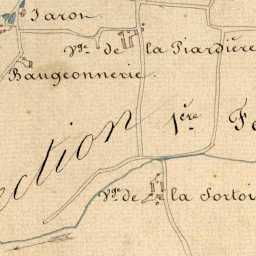 Jaron
Vge. de la Piardière
Baugeonnerie.
ection 1ère Fe
Vge. de la Sortoi